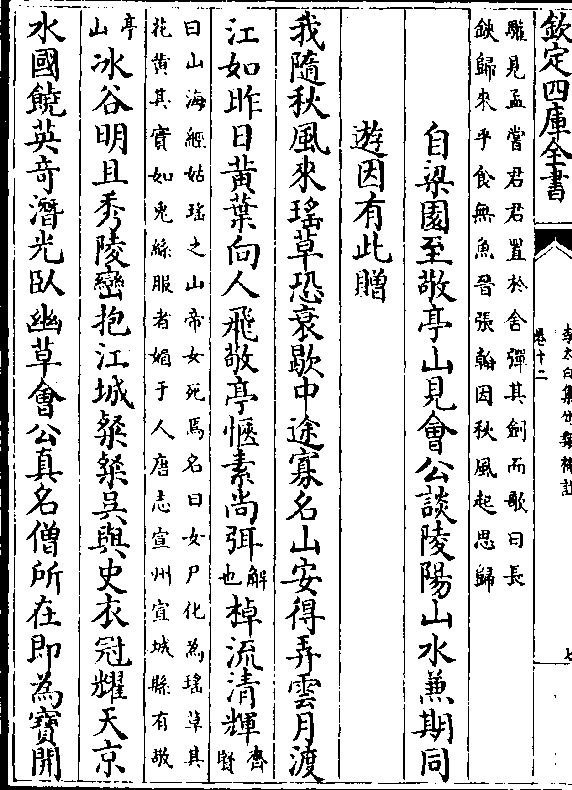 欽定四庫全書
李太白集分類補註
卷十二
七
驩見孟嘗君君置於舍彈其劍而歌曰長
鋏歸來乎食無魚晉張翰因秋風起思歸
自梁園至敬亭山見會公談陵陽山水兼期同
遊因有此贈
我隨秋風來瑤草恐衰歇中途寡名山安得弄雲月渡
江如昨日黃葉向人飛敬亭愜素尚弭解也棹流清輝齊賢
曰山海經姑瑤之山帝女死焉名曰女尸化為瑤草其
花黃其實如兔絲服者媚于人唐志宣州宣城縣有敬
亭山冰谷明且秀陵巒抱江城粲粲吳與史衣冠耀天京
水國饒英奇潛光臥幽草會公真名僧所在即為寶開